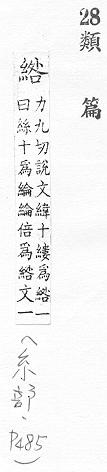 28 類篇
綹 力九切說文緯十縷爲綹一
曰絲十爲綸綸倍爲綹文一
(糸部、P485)